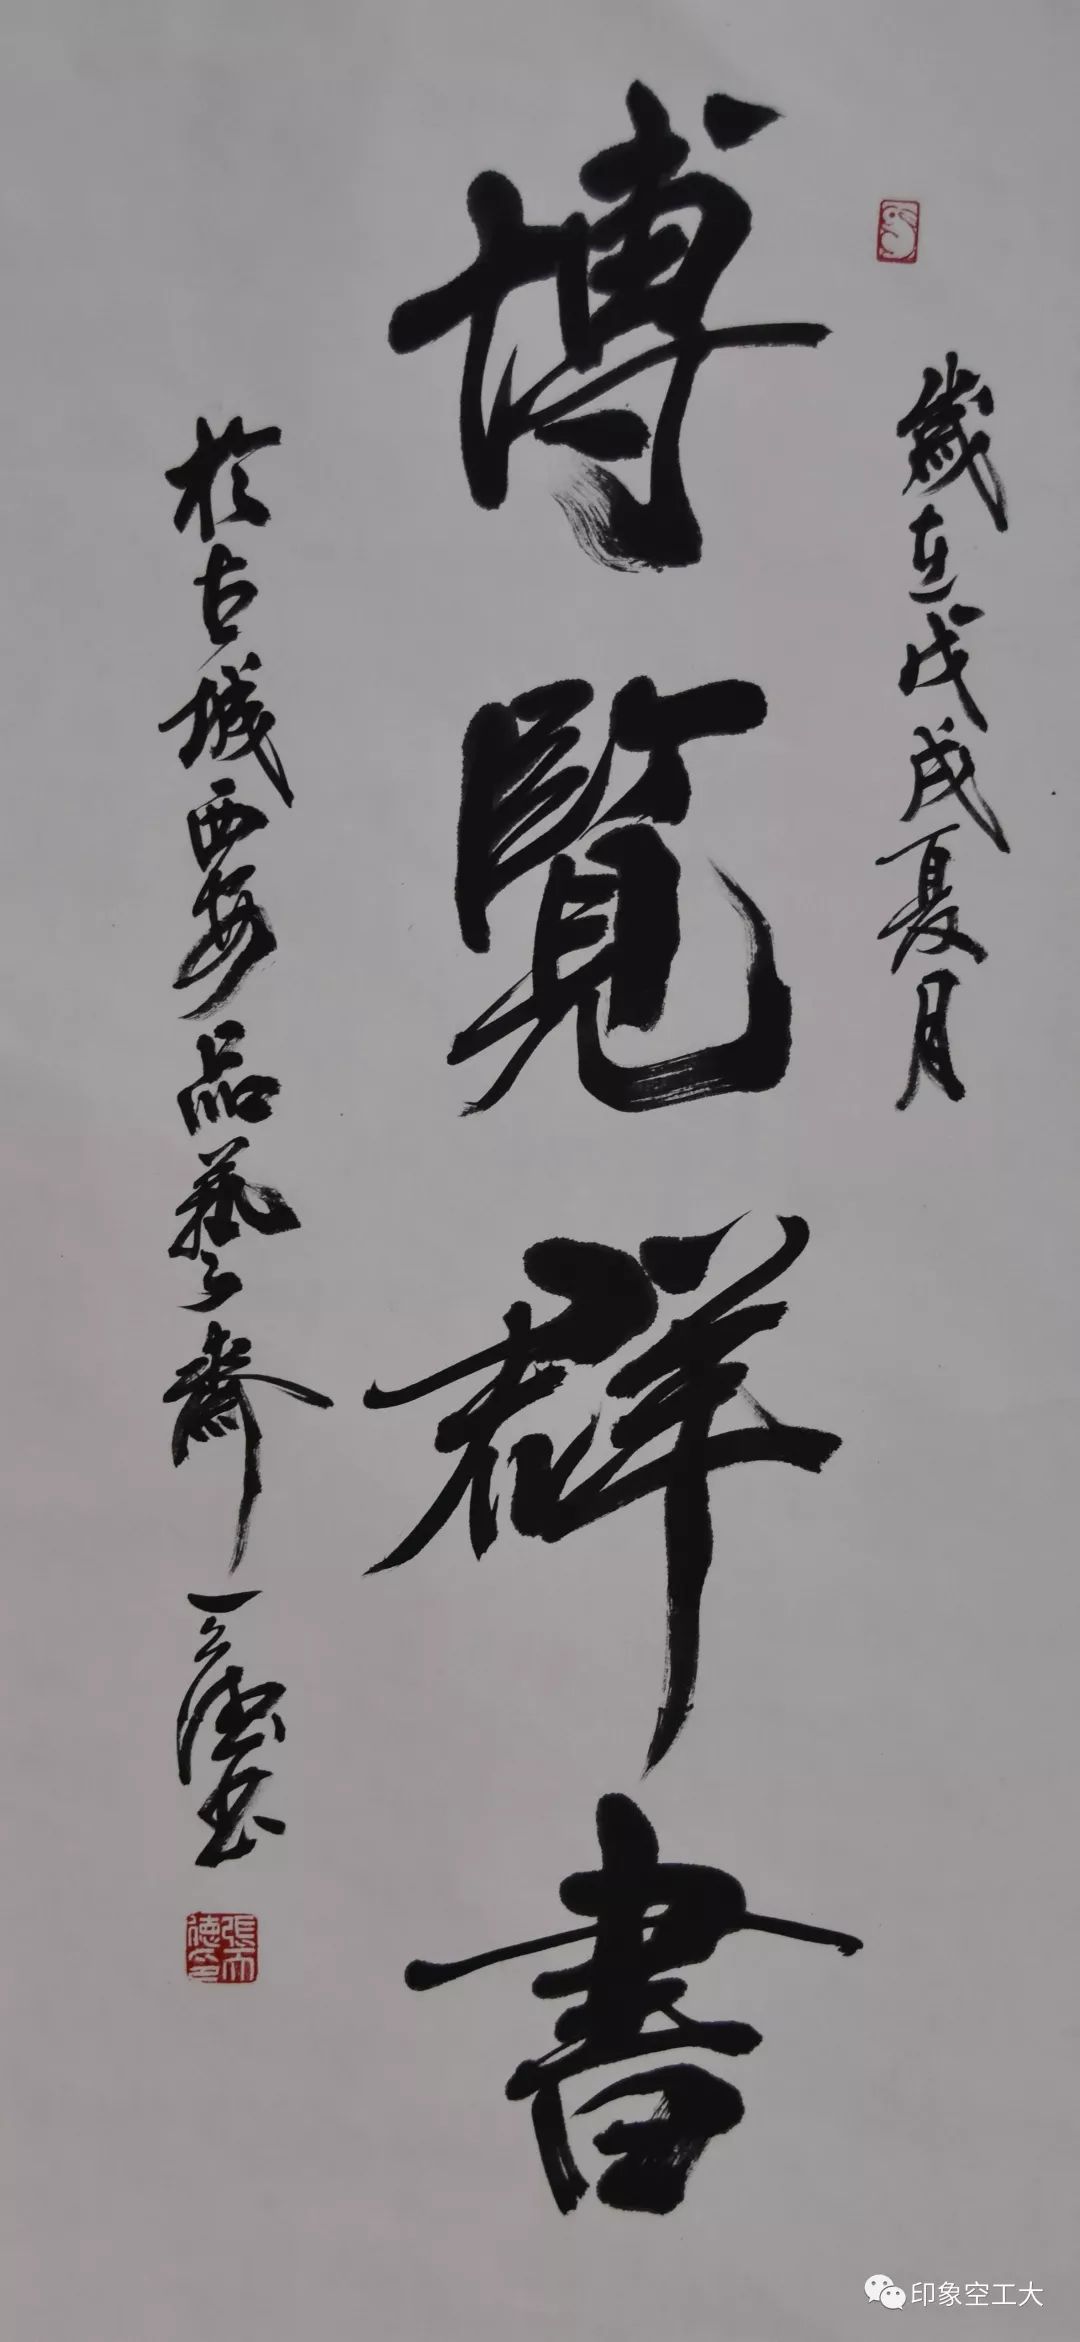 歲在戊戌夏月
博覽群書
於古城西安品藝齋天德書
張天德印
印象空工大